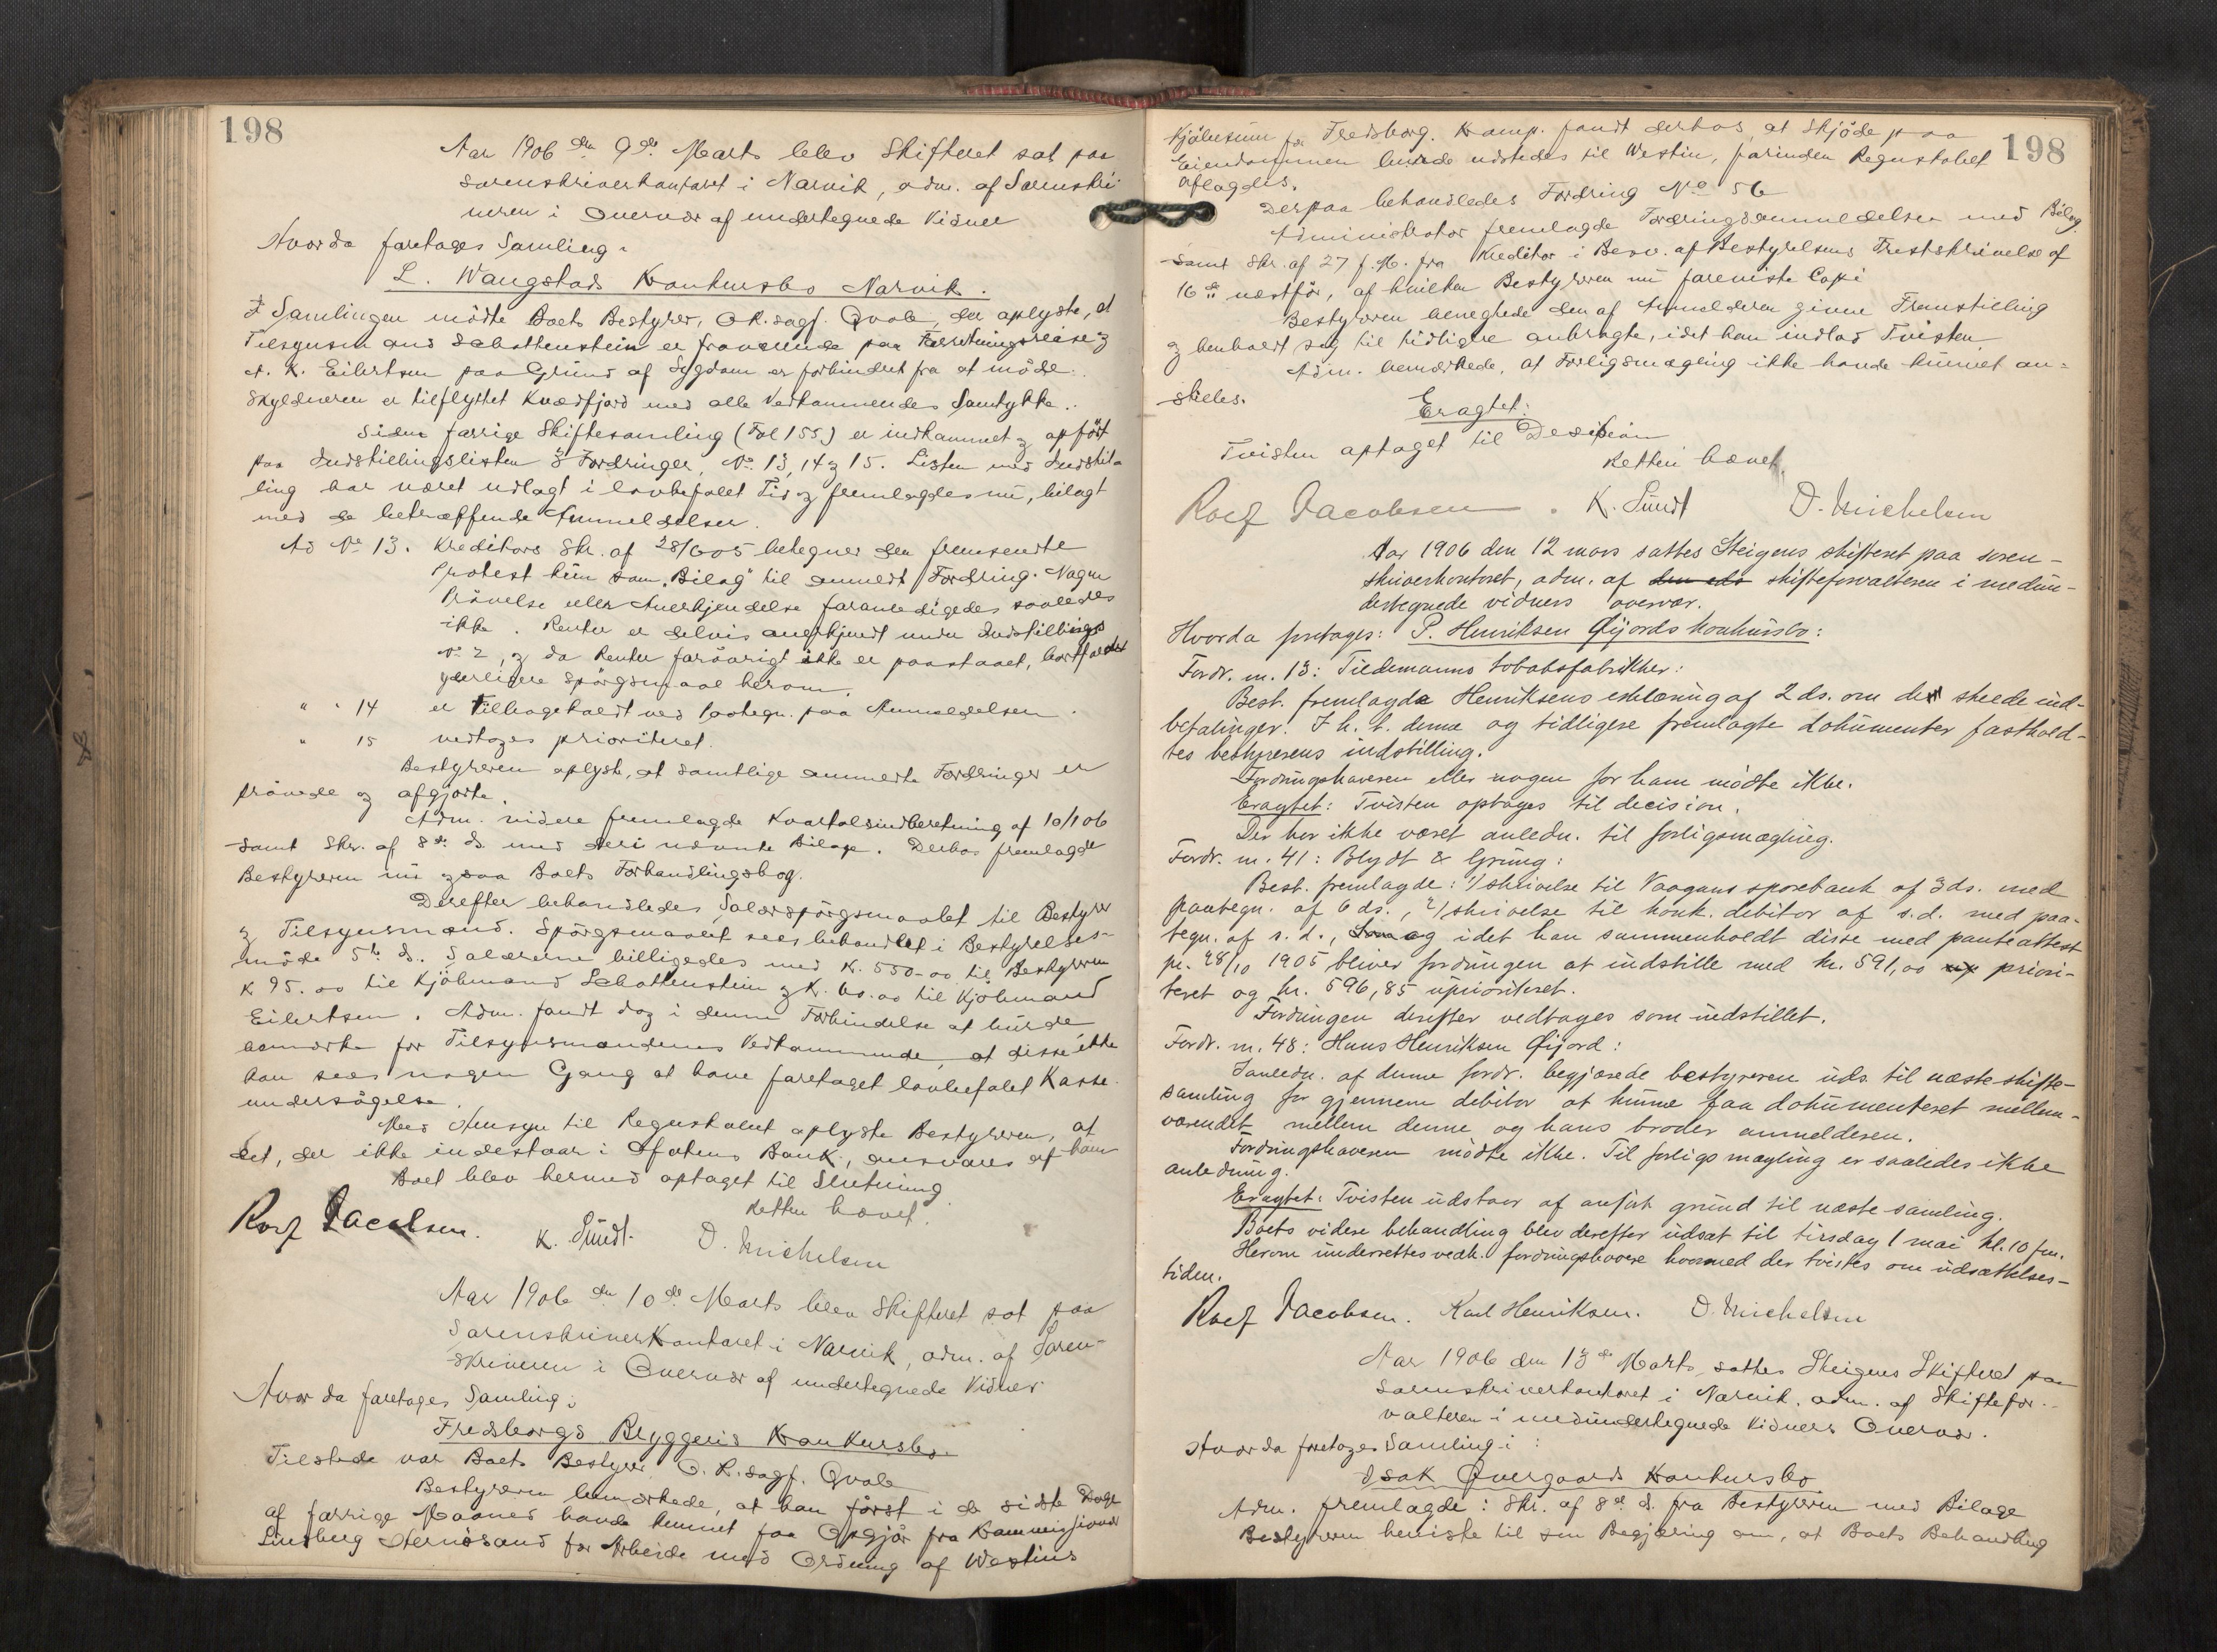 198
Aar 1906 den 9de Marts blev Skifteret sat paa
Sorenskriverkontoret i Narvik, adm. af Sorenskri-
veren i Overvær af undertegnede Vidner
Hvorda foretoges Samling i
L. Wangstads Konkursbo Narvik.
I Samlingen mödte Boets Bestyrer, O.R.sagf. Qvale, der oplyste, at
Tilsynsmand Schottenstein er fraværende paa Forretningsreise og
A. K. Eilertsen paa Grund af Sygdom er forhindret fra at möde.
Skyldneren er tilflyttet Kvædfjord med alle Vedkommendes Samtykke.
Siden forrige Skiftesamling (Fol 155) er indkommet og opfört
paa Indstillingslisten 3 Fordringer, No. 13, 14 og 15. Listen med Indstil-
ling har været udlagt i lovbefalet Tid og fremlagdes nu, bilagt
med de betræffende Anmeldelser.
Ad No 13. Kreditors Skr. af 28/6 05 betegner den fremsendte
Protest kun som "Bilag" til anmeldt Fordring. Nogen
Prövelse eller Anerkjendelse foranledigedes saaledes
ikke. Renter er delvis anerkjendt under Indstillings
No 2, og da Renter forövrigt ikke er paastaaet, bortfalder
yderligere Spörgsmaal herom.
" " 14 er tilbageholdt ved Paategn. paa Anmeldelsen.
" 15 vedtoges prioriteret.
Bestyreren oplyste, at samtlige anmeldte Fordringer er
prövede og afgjorte.
Adm. videre fremlagde Kvartalsindberetning af 10/1 06
samt Skr. af 8de ds. med deri nævnte Bilage. Derhos fremlagde
Bestyreren nu ogsaa Boets Forhandlingsbog.
Derefter behandledes Salærspörgsmaalet til Bestyrer
og Tilsynsmænd. Spörgsmaalet sees behandlet i Bestyrelses-
möde 5te ds. Salærerne billigedes med K. 550-00 til Bestyreren
K 95.00 til Kjöbmand Schottenstein og K. 60.00 til Kjöbmand
Eilertsen. Adm. fandt dog i denne Forbindelse at burde
bemærke for Tilsynsmændenes Vedkommende, at disse ikke
kan sees nogen Gang at have foretaget lovbefalet Kasse-
undersögelse.
Med Hensyn til Regnskabet oplyste Bestyreren, at
det, der ikke indestaar i Ofotens Bank, ansvares af ham
Boet blev hermed optaget til Slutning
Retten hævet.
Rolf Jacobsen. K. Sundt. O. Michelsen
Aar 1906 den 10de Marts blev Skifteret sat paa
Sorenskriverkontoret i Narvik, adm. af Soren-
skriveren i Overvær af undertegnede Vidner
Hvorda foretoges Samling i
Fredsborgs Bryggeris Konkursbo.
Tilstede var Boets Bestyrer O.R.sagf. Qvale
Bestyreren bemærkede, at han först i de sidste Dage
af forrige Maaned havde kunnet faa Opgjör fra Kommissionær
Lindberg Hernösand for Arbeide med Ordning af Westins
198
Kjöbesum for Fredsborg. Komp. fandt derhos, at Skjöde paa
Eiendommen burde udstedes til Westin, forinden Regnskabet
aflagdes.
Derpaa behandledes Fordring No 56
Administrator fremlagde Fordringsanmeldelsen med Bilag
samt Skr. af 27 f.M. fra Kreditor i Besv. af Bestyrelsens Tvistskrivelse af
16de næstför, af hvilken Bestyreren nu foreviste Copi
Bestyreren benegtede den af Anmelderen givne Fremstilling
og henholdt sig til tidligere anbragte, idet han indlod Tvisten.
Adm. bemærkede, at Forligsmægling ikke havde kunnet an-
stilles.
Eragtet:
Tvisten optaget til Desision
Retten hævet.
Rolf Jacobsen. K. Sundt O. Michelsen
Aar 1906 den 12 mars sattes Steigens skifteret paa soren-
skriverkontoret, adm. af skifteforvalteren i medun-
dertegnede vidners overvær.
Hvorda foretoges: P. Henriksen Öijords konkursbo:
Fordr. nr. 13: Tiedemanns tobaksfabrikker:
Best. fremlagde Henriksens erklæring af 2 ds. om de skeede ind-
betalinger. I h. t. denne og tidligere fremlagte dokumenter fasthold-
tes bestyrerens indstilling.
Fordringshaveren eller nogen for ham mödte ikke.
Eragtet: Tvisten optages til decision.
Der har ikke været anledn. til forligsmægling.
Fordr. nr. 41: Blydt & Grung:
Best. fremlagde: 1/ skrivelse til Vaagans sparebank af 3 ds. med
paategn. af 6 ds., 2/ skrivelse til konk. debitor af s.d. med paa-
tegn. af s. d., og idet han sammenholdt disse med panteattest
pr. 28/10 1905 bliver fordringen at indstille med kr. 591,00 priori-
teret og kr. 596,85 uprioriteret.
Fordringen derefter vedtages som indstillet.
Fordr. nr. 48: Hans Henriksen Öijord:
I anledn. af denne fordr. begjærede bestyreren uds. til næste skifte-
samling for gjennem debitor at kunne faa dokumenteret mellem-
værendet mellem denne og hans broder anmelderen.
Fordringshaveren mödte ikke. Til forligsmægling er saaledes ikke
anledning.
Eragtet: Tvisten udstaar af anfört grund til næste samling.
Boets videre behandling blev derefter udsat til tirsdag 1 mai kl. 10 fm.
Herom underrettes vedk. fordringshavere hvormed der tvistes om udsættelses-
tiden.
Rolf Jacobsen. Karl Henriksen. O. Michelsen
Aar 1906 den 13de Marts sattes Steigens Skifteret paa
Sorenskriverkontoret i Narvik, adm. af Skiftefor-
valteren i medundertegnede Vidners Overvær.
Hvorda foretoges Samling i:
Isak Overgaards Konkursbo
Adm. fremlagde: Skr. af 8de ds. fra Bestyreren med Bilage
Bestyreren henviste til sin Begjæring om, at Boets Behandling